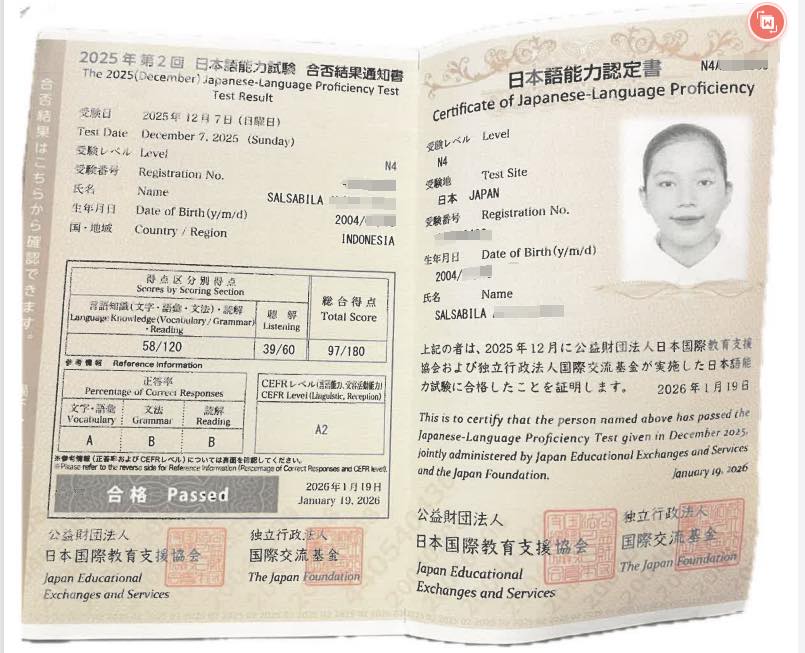 合否結果はこちらから確認できます。
2025年第2回 日本語能力試験 合否結果通知書
The 2025(December) Japanese-Language Proficiency Test
Test Result
受験日 2025年12月7日(日曜日)
Test Date December 7, 2025 (Sunday)
受験レベル Level N4
受験番号 Registration No.
氏名 Name SALSABILA
生年月日 Date of Birth(y/m/d) 2004/
国・地域 Country / Region INDONESIA
得点区分別得点
Scores by Scoring Section
総合得点
Total Score
言語知識(文字・語彙・文法)・読解
Language Knowledge(Vocabulary/Grammar)
・Reading
聴解
Listening
58/120 39/60 97/180
参考情報 Reference Information
正答率
Percentage of Correct Responses
CEFRレベル(言語能力、受容活動能力)
CEFR Level (Linguistic, Reception)
文字・語彙 文法 読解
Vocabulary Grammar Reading
A B B
A2
※参考情報(正答率およびCEFRレベル)については裏面を確認してください。
※Please refer to the reverse side for Reference Information (Percentage of Correct Responses and CEFR level).
合格 Passed
2026年1月19日
January 19, 2026
公益財団法人 独立行政法人
日本国際教育支援協会 国際交流基金
Japan Educational The Japan Foundation
Exchanges and Services
日本語能力認定書
Certificate of Japanese-Language Proficiency
受験レベル Level
N4
受験地 Test Site
日本 JAPAN
受験番号 Registration No.
生年月日 Date of Birth(y/m/d)
2004/
氏名 Name
SALSABILA
上記の者は、2025年12月に公益財団法人日本国際教育支援
協会および独立行政法人国際交流基金が実施した日本語能
力試験に合格したことを証明します。 2026年1月19日
This is to certify that the person named above has passed the
Japanese-Language Proficiency Test given in December 2025,
jointly administered by Japan Educational Exchanges and Services
and the Japan Foundation. January 19, 2026
公益財団法人 独立行政法人
日本国際教育支援協会 国際交流基金
Japan Educational The Japan Foundation
Exchanges and Services